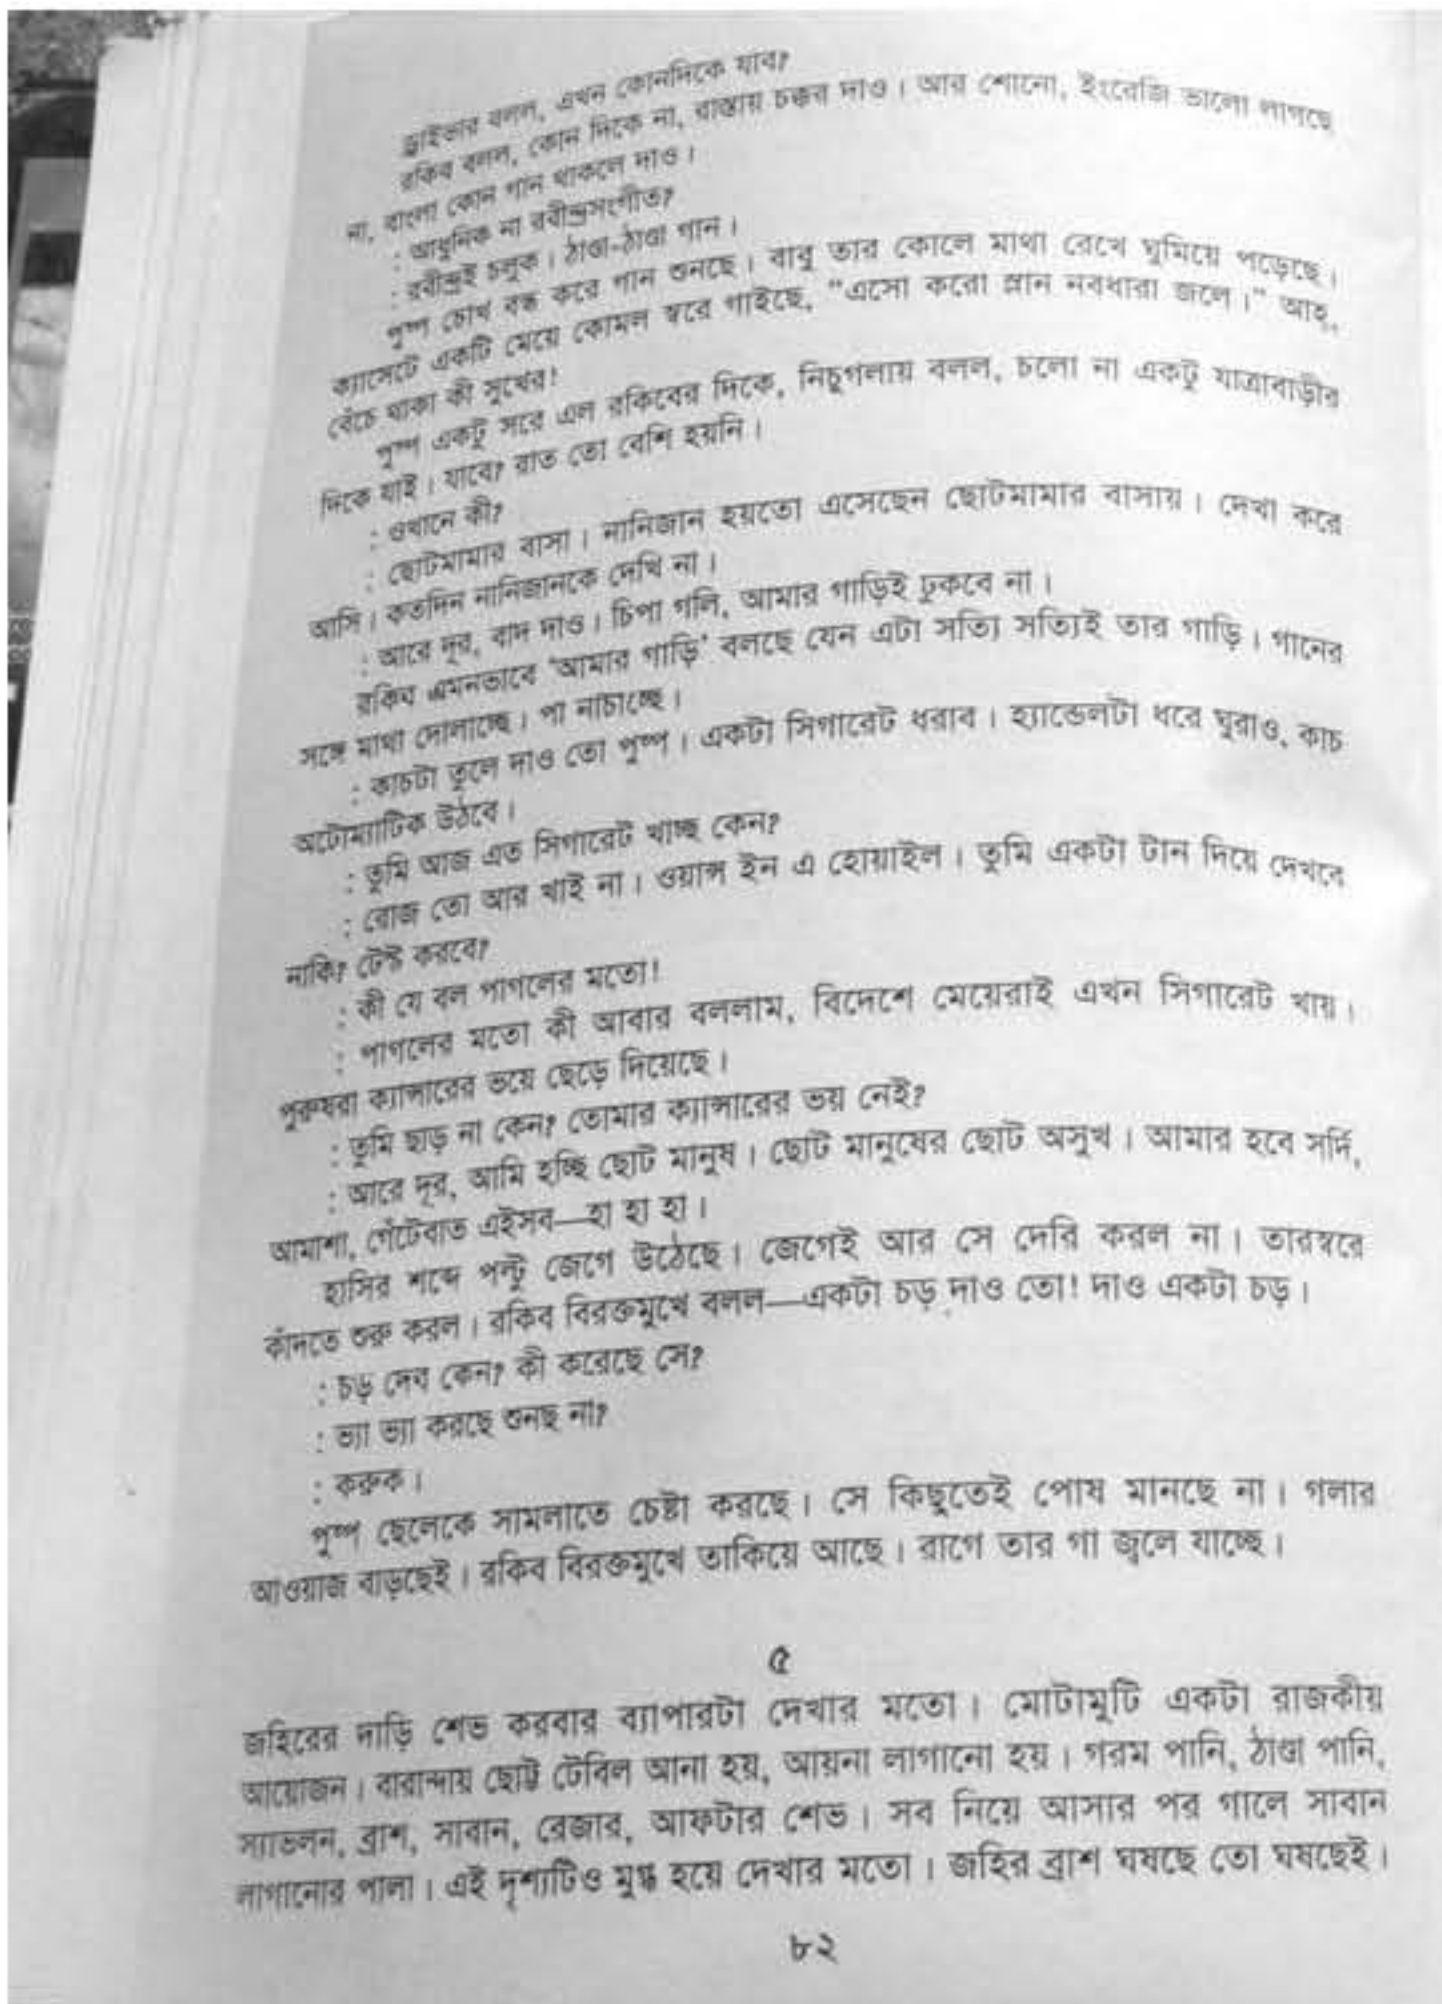 ড্রাইভার বলল, এখন কোনদিকে যাব?
রকিব বলল, কোন দিকে না, রাস্তায় চক্কর দাও। আর শোনো, ইংরেজি ভালো লাগছে
না, বাংলা কোন গান থাকলে দাও।
: আধুনিক না রবীন্দ্রসংগীত?
: রবীন্দ্রই চলুক। ঠাণ্ডা-ঠাণ্ডা গান।
পুষ্প চোখ বন্ধ করে গান শুনছে। বাবু তার কোলে মাথা রেখে ঘুমিয়ে পড়েছে।
ক্যাসেটে একটি মেয়ে কোমল স্বরে গাইছে, “এসো করো স্নান নবধারা জলে।” আহ্,
বেঁচে থাকা কী সুখের!
পুষ্প একটু সরে এল রকিবের দিকে, নিচুগলায় বলল, চলো না একটু যাত্রাবাড়ীর
দিকে যাই। যাবে? রাত তো বেশি হয়নি।
: ওখানে কী?
: ছোটমামার বাসা। নানিজান হয়তো এসেছেন ছোটমামার বাসায়। দেখা করে
আসি। কতদিন নানিজানকে দেখি না।
: আরে দূর, বাদ দাও। চিপা গলি, আমার গাড়িই ঢুকবে না।
রকিব এমনভাবে ‘আমার গাড়ি’ বলছে যেন এটা সত্যি সত্যিই তার গাড়ি। গানের
সঙ্গে মাথা দোলাচ্ছে। পা নাচাচ্ছে।
: কাচটা তুলে দাও তো পুষ্প। একটা সিগারেট ধরাব। হ্যান্ডেলটা ধরে ঘুরাও, কাচ
অটোম্যাটিক উঠবে।
: তুমি আজ এত সিগারেট খাচ্ছ কেন?
: রোজ তো আর খাই না। ওয়ান্স ইন এ হোয়াইল। তুমি একটা টান দিয়ে দেখবে
নাকি? টেস্ট করবে?
: কী যে বল পাগলের মতো!
: পাগলের মতো কী আবার বললাম, বিদেশে মেয়েরাই এখন সিগারেট খায়।
পুরুষরা ক্যান্সারের ভয়ে ছেড়ে দিয়েছে।
: তুমি ছাড় না কেন? তোমার ক্যান্সারের ভয় নেই?
: আরে দূর, আমি হচ্ছি ছোট মানুষ। ছোট মানুষের ছোট অসুখ। আমার হবে সর্দি,
আমাশা, গেঁটেবাত এইসব—হা হা হা।
হাসির শব্দে পল্টু জেগে উঠেছে। জেগেই আর সে দেরি করল না। তারস্বরে
কাঁদতে শুরু করল। রকিব বিরক্তমুখে বলল—একটা চড় দাও তো! দাও একটা চড়।
: চড় দেব কেন? কী করেছে সে?
: ভ্যা ভ্যা করছে শুনছ না?
: করুক।
পুষ্প ছেলেকে সামলাতে চেষ্টা করছে। সে কিছুতেই পোষ মানছে না। গলার
আওয়াজ বাড়ছেই। রকিব বিরক্তমুখে তাকিয়ে আছে। রাগে তার গা জ্বলে যাচ্ছে।
৫
জহিরের দাড়ি শেভ করবার ব্যাপারটা দেখার মতো। মোটামুটি একটা রাজকীয়
আয়োজন। বারান্দায় ছোট্ট টেবিল আনা হয়, আয়না লাগানো হয়। গরম পানি, ঠাণ্ডা পানি,
স্যাভলন, ব্রাশ, সাবান, রেজার, আফটার শেভ। সব নিয়ে আসার পর গালে সাবান
লাগানোর পালা। এই দৃশ্যটিও মুগ্ধ হয়ে দেখার মতো। জহির ব্রাশ ঘষছে তো ঘষছেই।
৮২